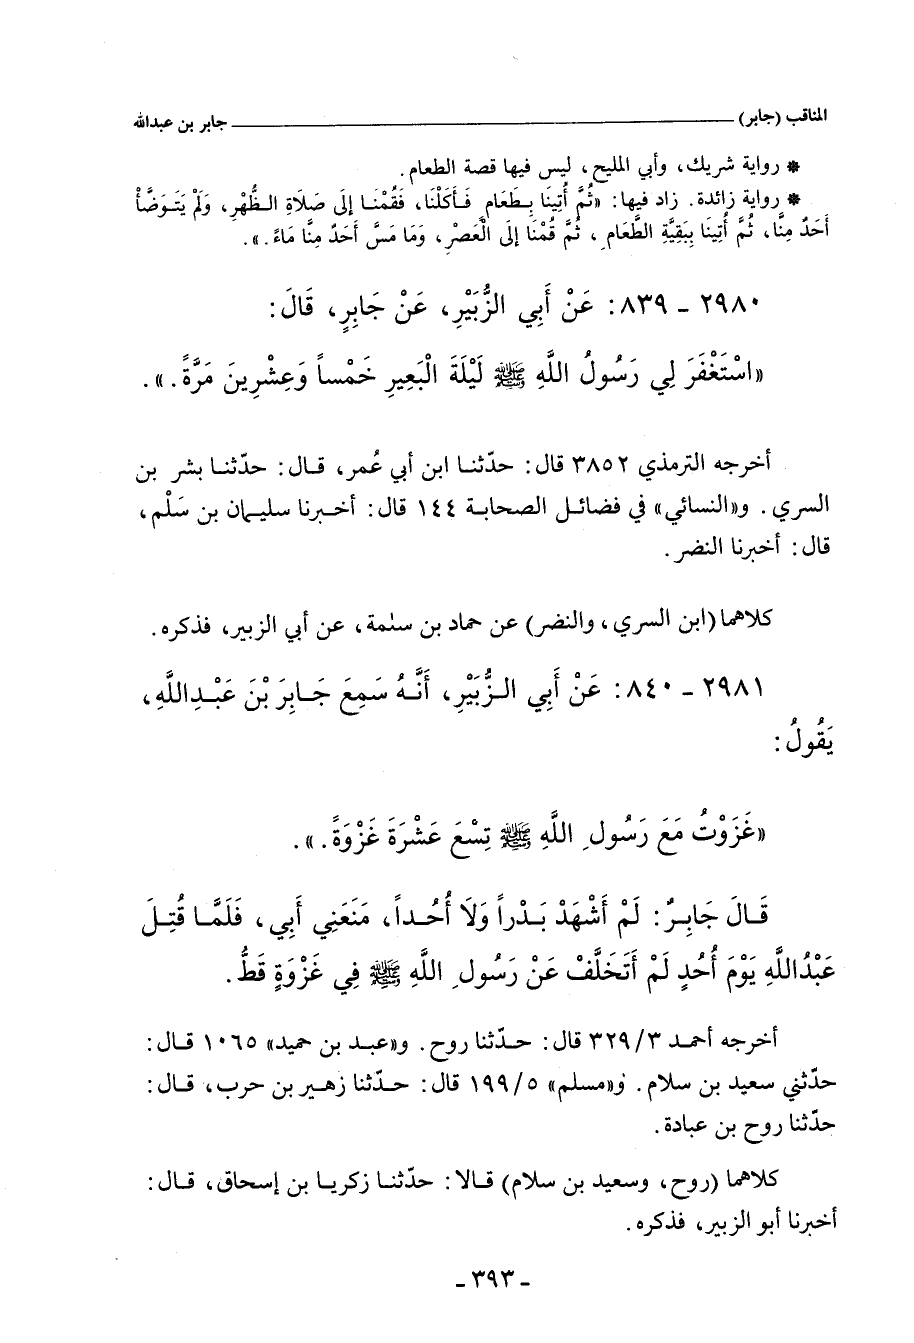 المناقب (جابر) ــــــــــــــــــــــــــــــــــــــــ جابر بن عبدالله
* رواية شريك، وأبي المليح، ليس فيها قصة الطعام.
* رواية زائدة. زاد فيها: «ثُمَّ أُتِينَا بِطَعَامٍ فَأَكَلْنَا، فَقُمْنَا إِلَى صَلَاةِ الظُّهْرِ، وَلَمْ يَتَوَضَّأْ
أَحَدٌ مِنَّا، ثُمَّ أُتِينَا بِبَقِيَّةِ الطَّعَامِ، ثُمَّ قُمْنَا إِلَى الْعَصْرِ، وَمَا مَسَّ أَحَدٌ مِنَّا مَاءً.».
٢٩٨٠ - ٨٣٩: عَنْ أَبِي الزُّبَيْرِ، عَنْ جَابِرٍ، قَالَ:
«اسْتَغْفَرَ لِي رَسُولُ اللَّهِ ﷺ لَيْلَةَ الْبَعِيرِ خَمْساً وَعِشْرِينَ مَرَّةً.».
أخرجه الترمذي ٣٨٥٢ قال: حدّثنا ابن أبي عُمر، قال: حدّثنا بشر بن
السري. و«النسائي» في فضائل الصحابة ١٤٤ قال: أخبرنا سليمان بن سَلْم،
قال: أخبرنا النضر.
كلاهما (ابن السري، والنضر) عن حماد بن سلمة، عن أبي الزبير، فذكره.
٢٩٨١ - ٨٤٠: عَنْ أَبِي الزُّبَيْرِ، أَنَّهُ سَمِعَ جَابِرَ بْنَ عَبْدِاللَّهِ،
يَقُولُ:
«غَزَوْتُ مَعَ رَسُولِ اللَّهِ ﷺ تِسْعَ عَشْرَةَ غَزْوَةً.».
قَالَ جَابِرٌ: لَمْ أَشْهَدْ بَدْراً وَلَا أُحُداً، مَنَعَنِي أَبِي، فَلَمَّا قُتِلَ
عَبْدُاللَّهِ يَوْمَ أُحُدٍ لَمْ أَتَخَلَّفْ عَنْ رَسُولِ اللَّهِ ﷺ فِي غَزْوَةٍ قَطُّ.
أخرجه أحمد ٣٢٩/٣ قال: حدّثنا روح. و«عبد بن حميد» ١٠٦٥ قال:
حدّثني سعيد بن سلام. و«مسلم» ١٩٩/٥ قال: حدّثنا زهير بن حرب، قال:
حدّثنا روح بن عبادة.
كلاهما (روح، وسعيد بن سلام) قالا: حدّثنا زكريا بن إسحاق، قال:
أخبرنا أبو الزبير، فذكره.
- ٣٩٣ -